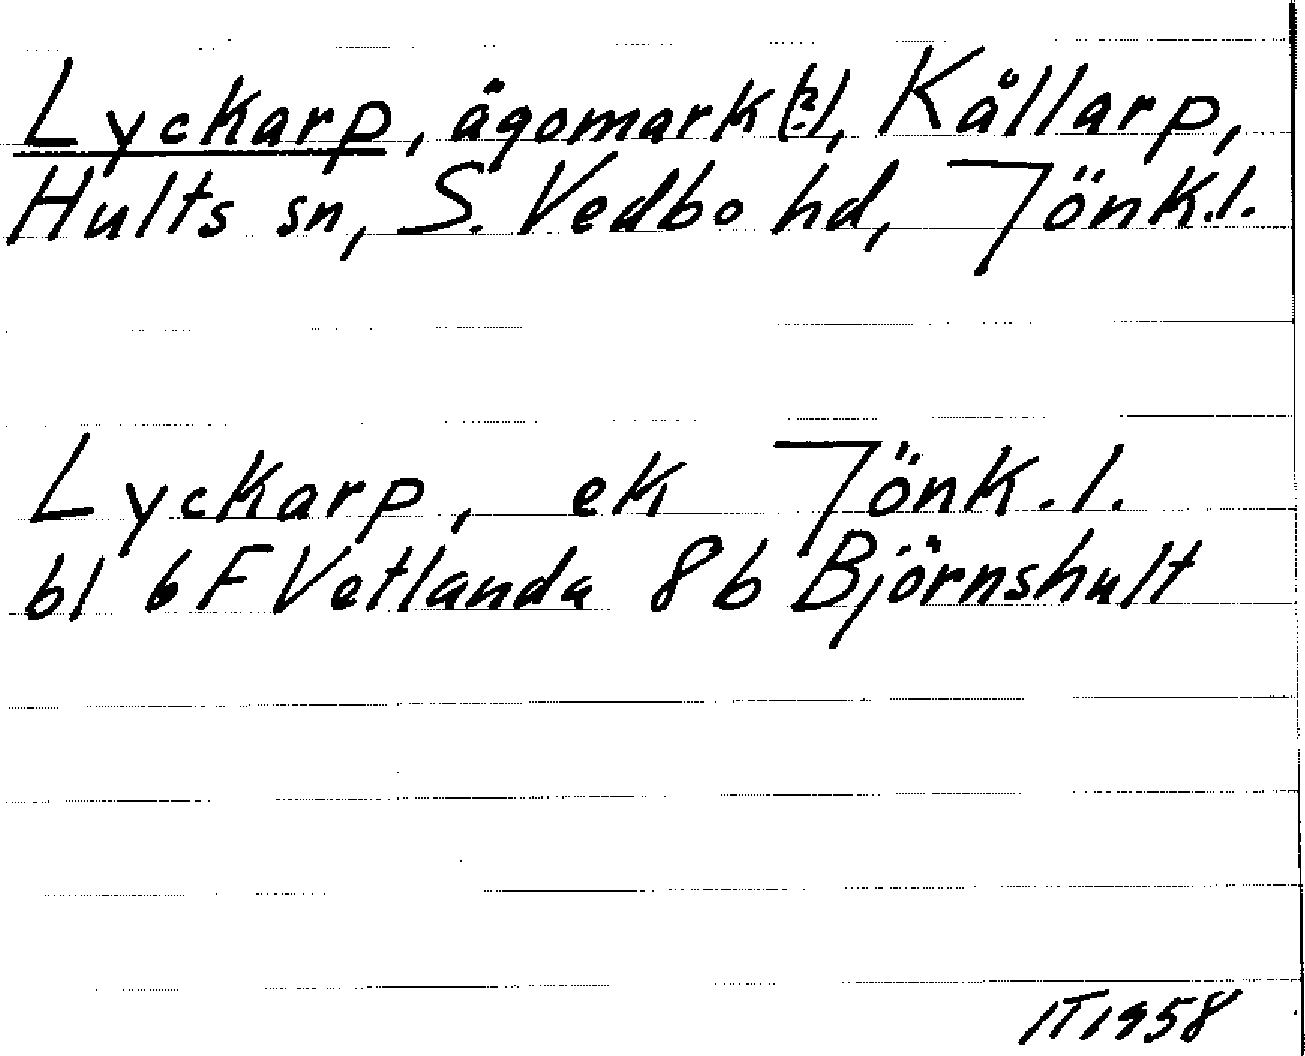 Lyckarp, ägomark(?), Kållarp,
Hults sn, S. Vedbo hd, Jönk.l.
Lyckarp, ek Jönk.l.
bl 6F Vetlanda 8b Björnshult
IT 1958